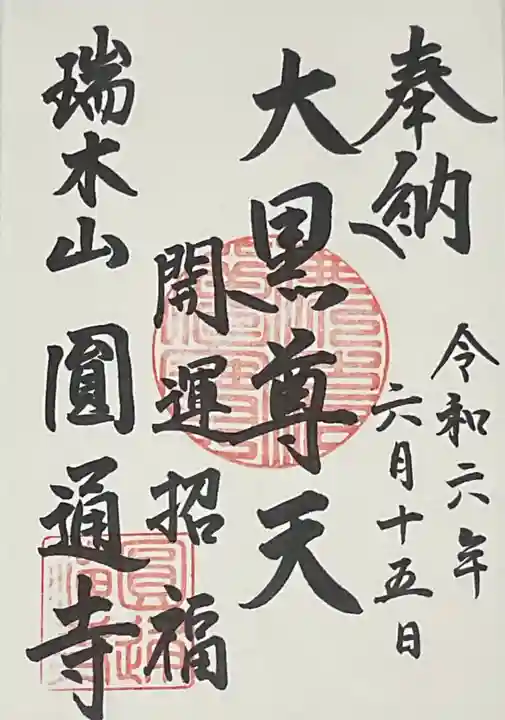 奉納
令和六年
六月十五日
大黒尊天
開運招福
瑞木山 圓通寺
圓通